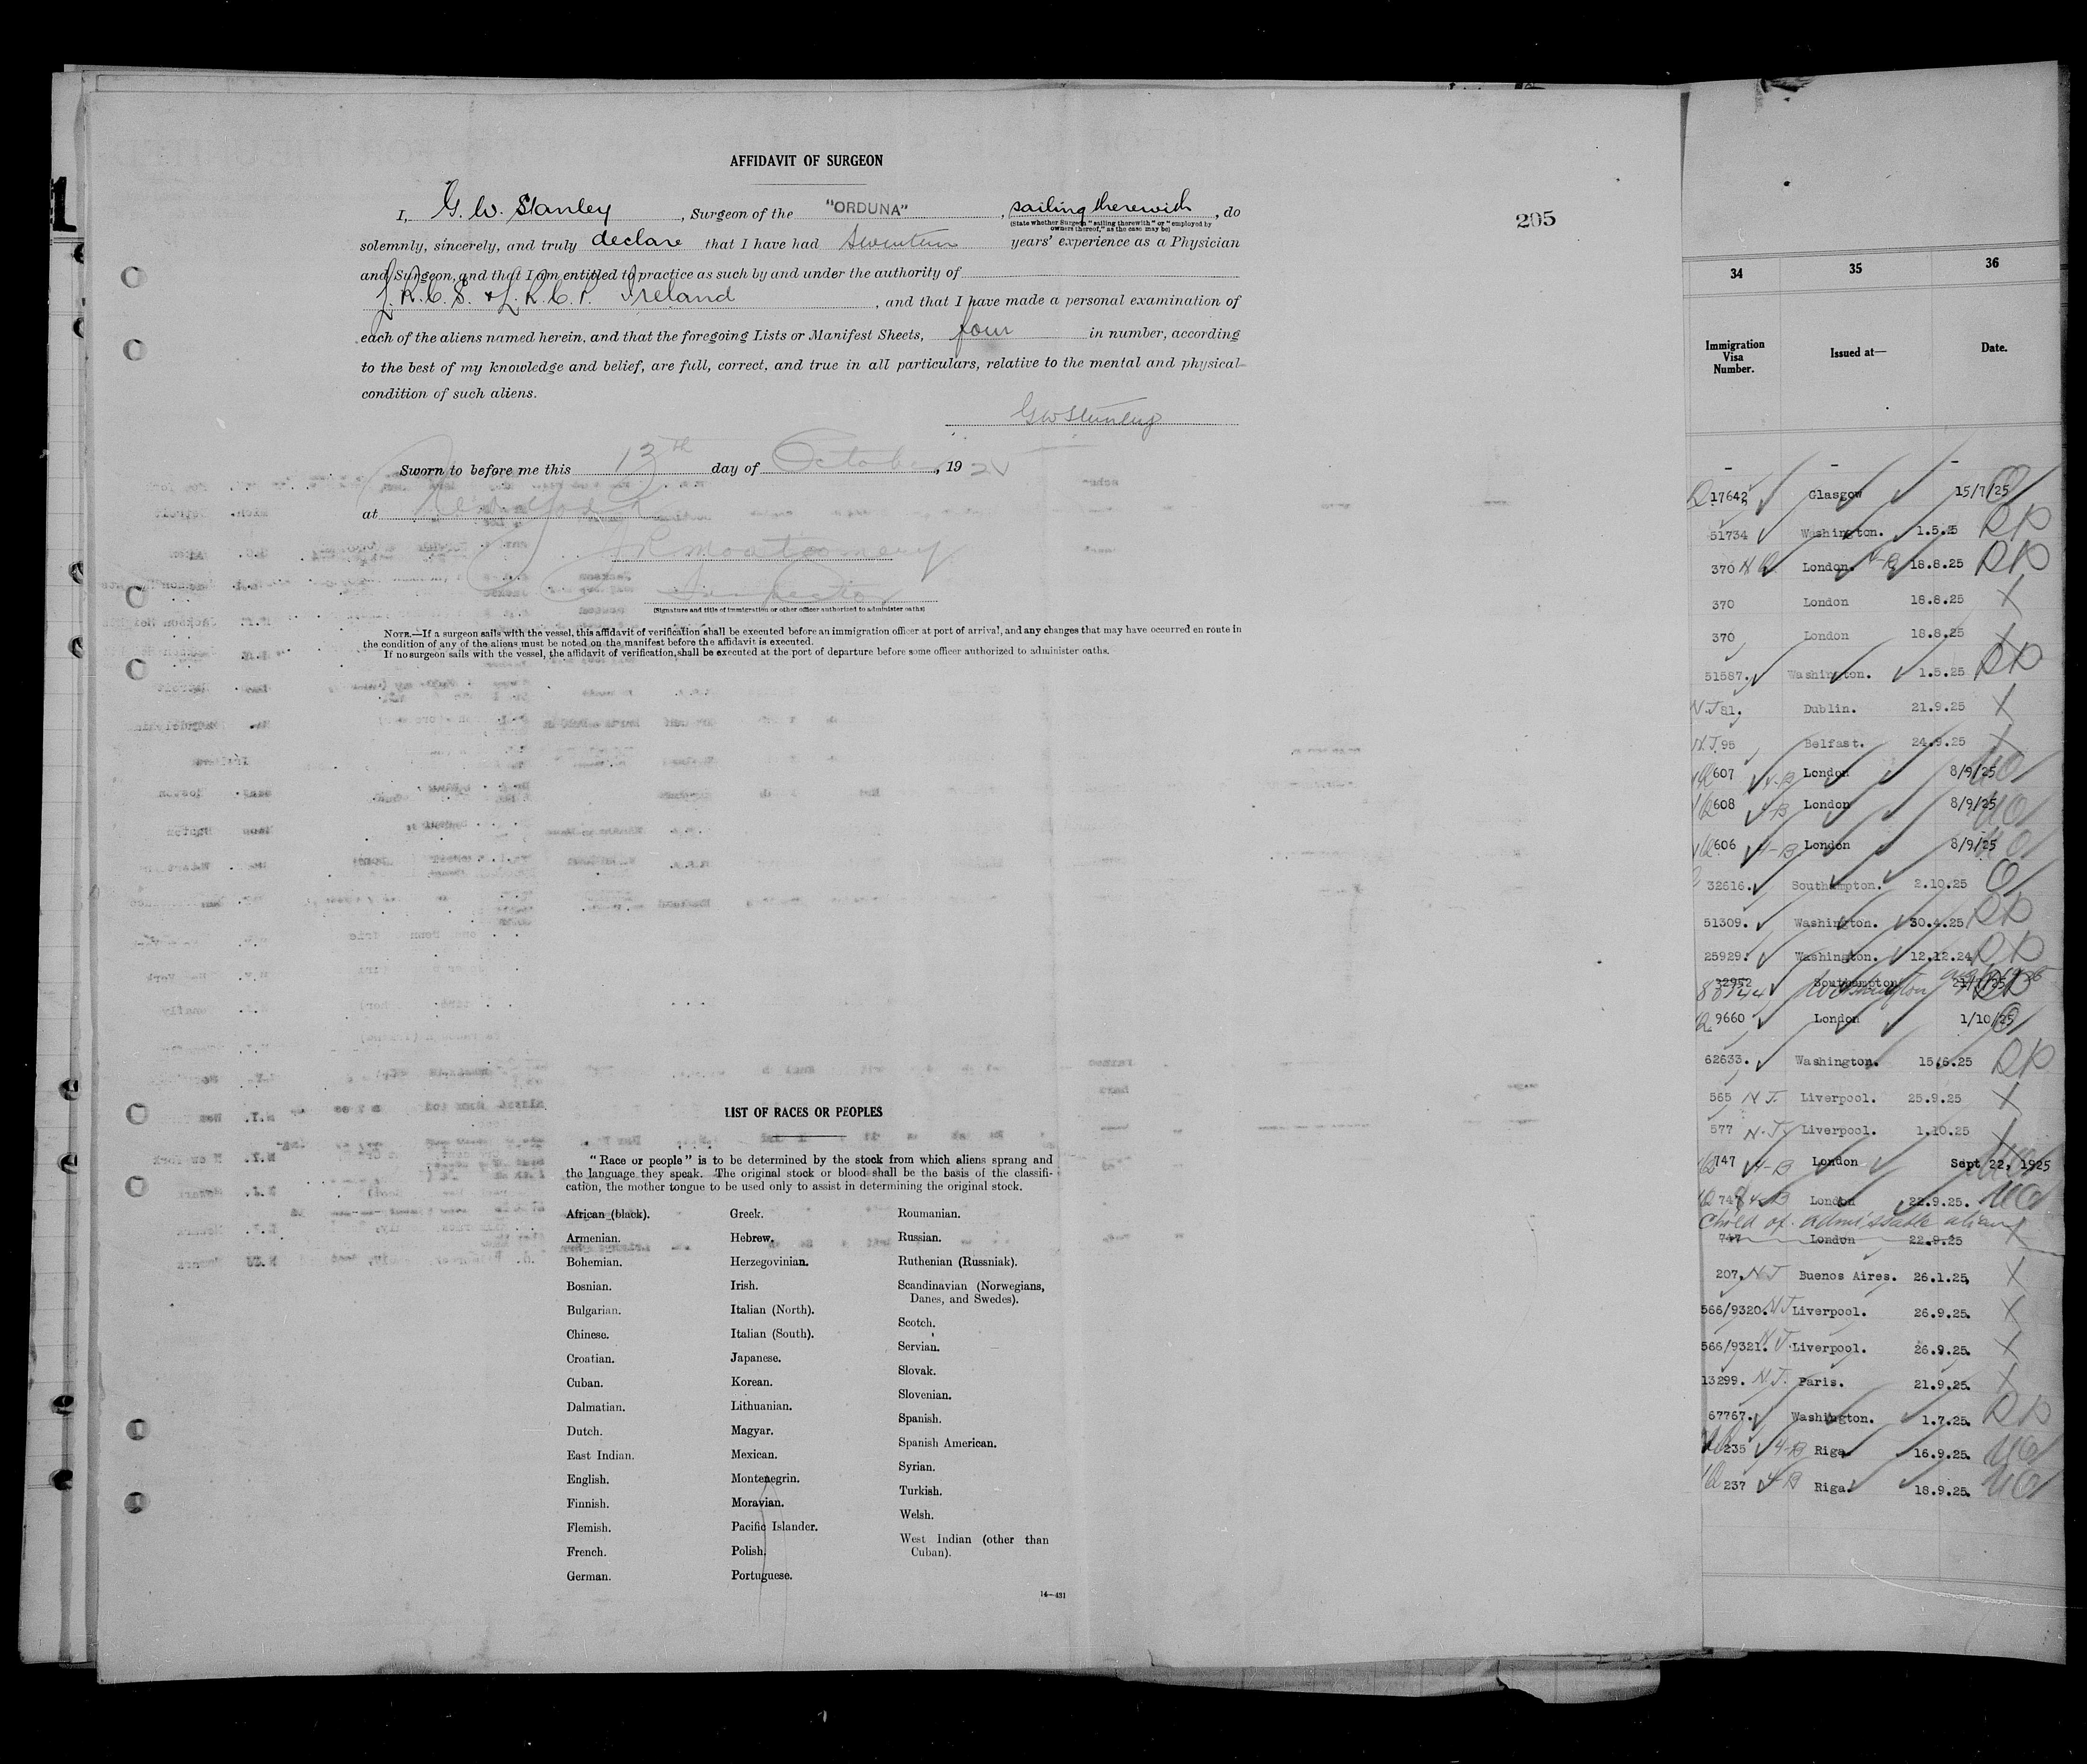 AFFIDAVIT OF SURGEON
I, G. W. Stanley, Surgeon of the "ORDUNA", sailing therewith, do
(State whether Surgeon "sailing therewith" or "employed by
owners thereof," as the case may be)
solemnly, sincerely, and truly declare that I have had Seventeen years' experience as a Physician
and Surgeon, and that I am entitled to practice as such by and under the authority of
L.R.C.S. & L.R.C.P. Ireland, and that I have made a personal examination of
each of the aliens named herein, and that the foregoing Lists or Manifest Sheets, four in number, according
to the best of my knowledge and belief, are full, correct, and true in all particulars, relative to the mental and physical
condition of such aliens.
GW Stanley
Sworn to before me this 13th day of October, 19
at
Montgomery
Inspector
(Signature and title of immigration or other officer authorized to administer oaths)
NOTE.—If a surgeon sails with the vessel, this affidavit of verification shall be executed before an immigration officer at port of arrival, and any changes that may have occurred en route in
the condition of any of the aliens must be noted on the manifest before the affidavit is executed.
If no surgeon sails with the vessel, the affidavit of verification shall be executed at the port of departure before some officer authorized to administer oaths.
205
LIST OF RACES OR PEOPLES
"Race or people" is to be determined by the stock from which aliens sprang and
the language they speak. The original stock or blood shall be the basis of the classifi-
cation, the mother tongue to be used only to assist in determining the original stock.
African (black).
Armenian.
Bohemian.
Bosnian.
Bulgarian.
Chinese.
Croatian.
Cuban.
Dalmatian.
Dutch.
East Indian.
English.
Finnish.
Flemish.
French.
German.
Greek.
Hebrew.
Herzegovinian.
Irish.
Italian (North).
Italian (South).
Japanese.
Korean.
Lithuanian.
Magyar.
Mexican.
Montenegrin.
Moravian.
Pacific Islander.
Polish.
Portuguese.
Roumanian.
Russian.
Ruthenian (Russniak).
Scandinavian (Norwegians,
Danes, and Swedes).
Scotch.
Servian.
Slovak.
Slovenian.
Spanish.
Spanish American.
Syrian.
Turkish.
Welsh.
West Indian (other than
Cuban).
14—431
34 35 36
Immigration
Visa
Number. Issued at— Date.
- - -
17642 Glasgow 15/7/25
51734 Washington. 1.5.25 RP
370 London. 18.8.25 RP
370 London 18.8.25 X
370 London 18.8.25 X
51587. Washington. 1.5.25 RP
N.J 81. Dublin. 21.9.25 X
N.J. 95 Belfast. 24.9.25 X
607 4-B London 8/9/25
608 4-B London 8/9/25
606 4-B London 8/9/25
32616. Southampton. 2.10.25
51309. Washington. 30.4.25 RP
25929. Washington. 12.12.24 RP
32952 Southampton
Washington
9660 London 1/10/25
62633. Washington. 15.6.25 RP
565 N.J. Liverpool. 25.9.25 X
577 N.J. Liverpool. 1.10.25 X
747 4-B London Sept 22, 1925
4-B London 22.9.25.
Child of admissable alien
747 London 22.9.25 X
207. N.J Buenos Aires. 26.1.25. X
566/9320. N.J Liverpool. 26.9.25. X
566/9321. N.J. Liverpool. 26.9.25. X
13299. N.J. Paris. 21.9.25. X
67767. Washington. 1.7.25. RP
235 4-B Riga. 16.9.25.
237 4-B Riga. 18.9.25.